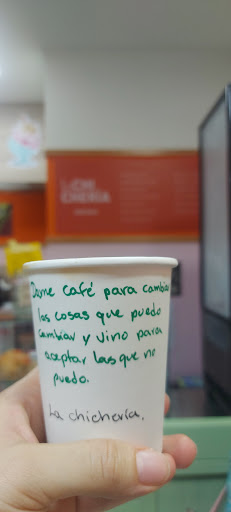 LA CHI
CHERÍA
Dame café para cambiar
las cosas que puedo
cambiar y vino para
aceptar las que no
puedo.
La chichería.